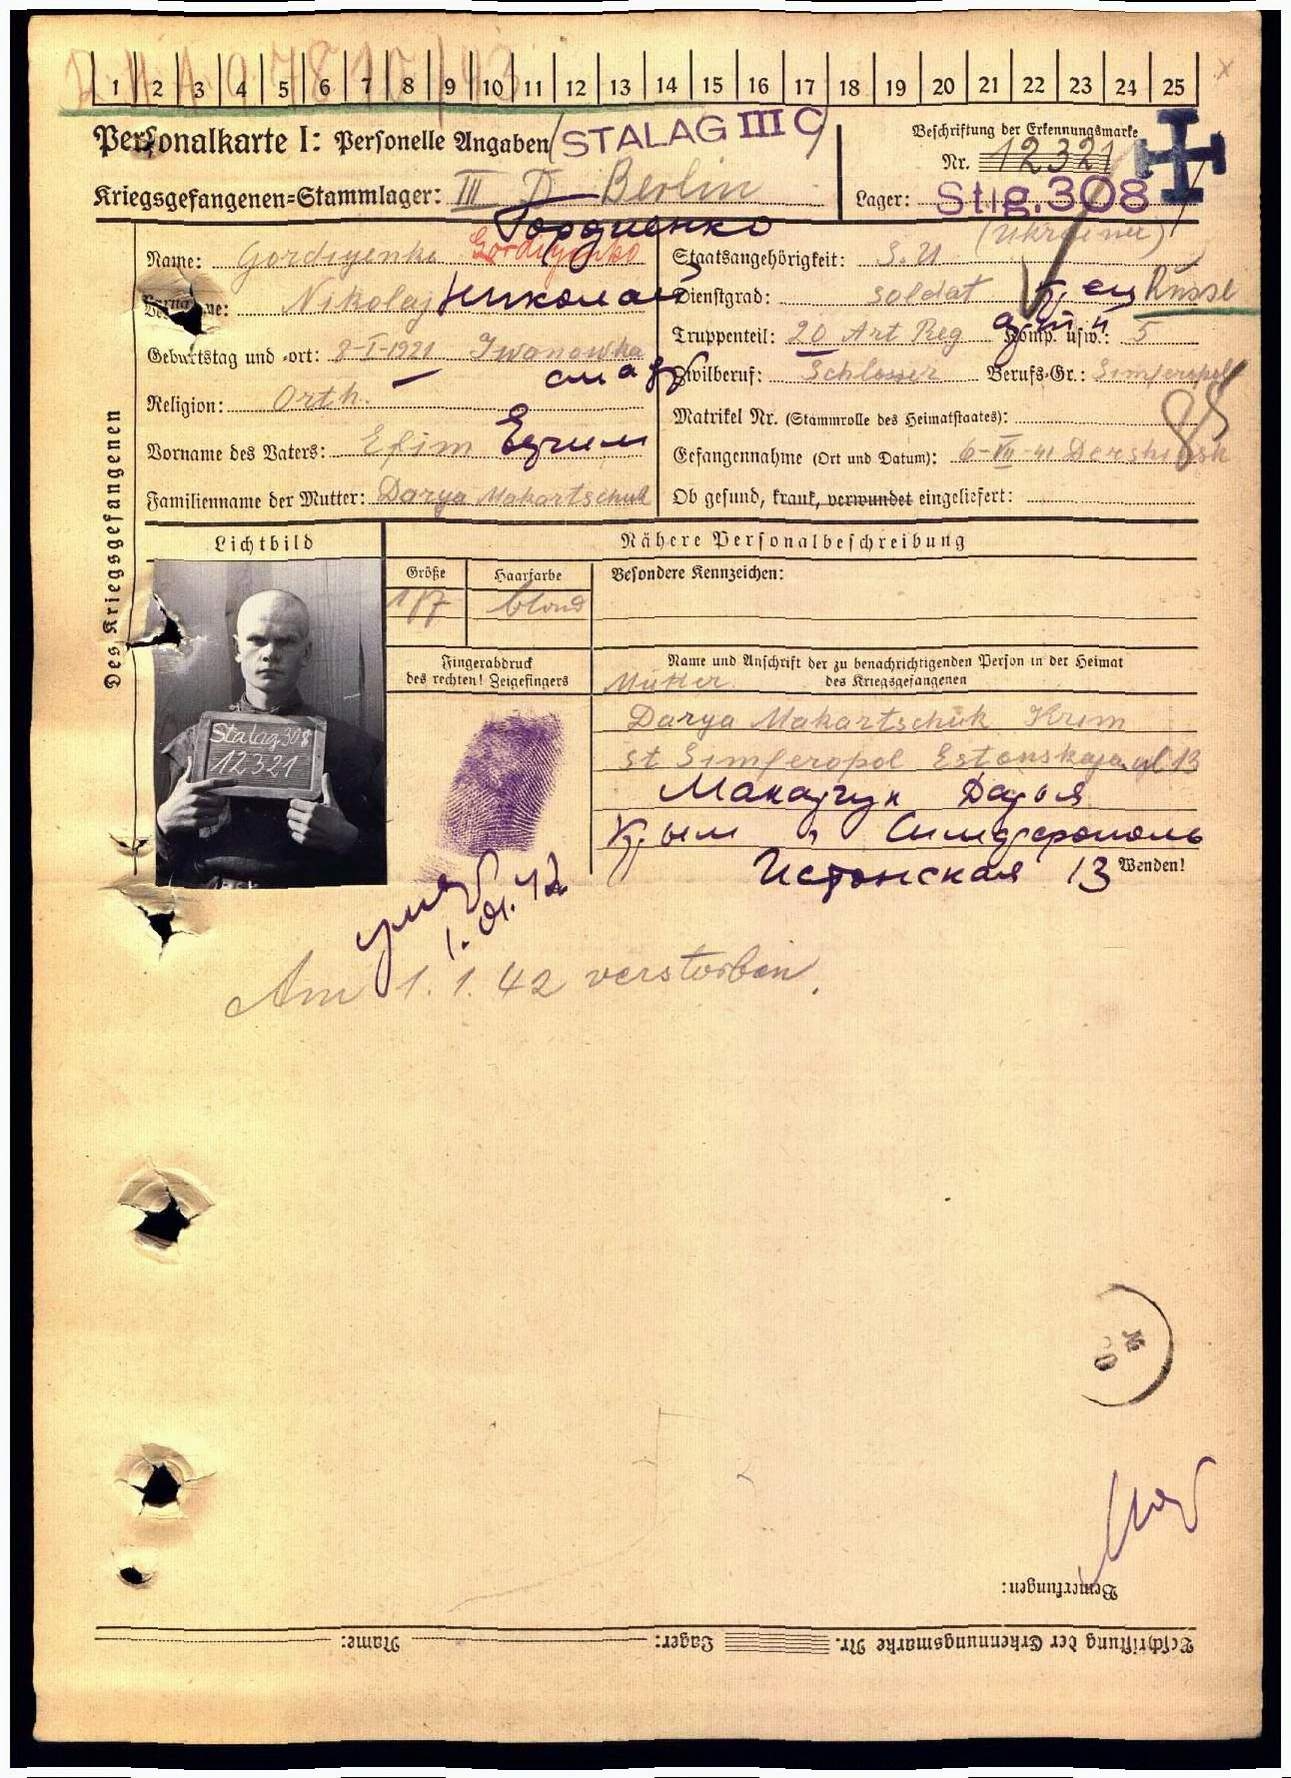 1 2 3 4 5 6 7 8 9 10 11 12 13 14 15 16 17 18 19 20 21 22 23 24 25
Personalkarte I: Personelle Angaben
STALAG III C
Beschriftung der Erkennungsmarke
Nr. 12321
Kriegsgefangenen-Stammlager: III D Berlin
Lager: Stlg. 308
Гордиенко
(Ukrainer)
Des Kriegsgefangenen
Name: Gordiyenko Gordiyenko
Staatsangehörigkeit: S.U
Vorname: Nikolaj Николай
Dienstgrad: soldat
Russe
Truppenteil: 20 Art Reg Komp. usw.: 5
Geburtstag und -ort: 8-I-1921 Iwanowka
Zivilberuf: Schlosser Berufs-Gr.: Simferopol
Religion: Orth.
Matrikel Nr. (Stammrolle des Heimatstaates):
Vorname des Vaters: Efim Ефим
Gefangennahme (Ort und Datum): 6-VII-41
Familienname der Mutter: Darya Makartschuk
Ob gesund, krank, verwundet eingeliefert:
Lichtbild
Nähere Personalbeschreibung
Größe
Haarfarbe
Besondere Kennzeichen:
blond
Fingerabdruck
des rechten! Zeigefingers
Name und Anschrift der zu benachrichtigenden Person in der Heimat
des Kriegsgefangenen
Mutter
Darya Makartschuk Krim
st Simferopol Estonskaja ul 13
Stalag 308
12321
Макарчук Дарья
Крым г Симферополь
Истонская 13
Wenden!
умер
1.01.42
Am 1.1.42 verstorben.
Bemerkungen:
Beschriftung der Erkennungsmarke Nr. Lager: Name: